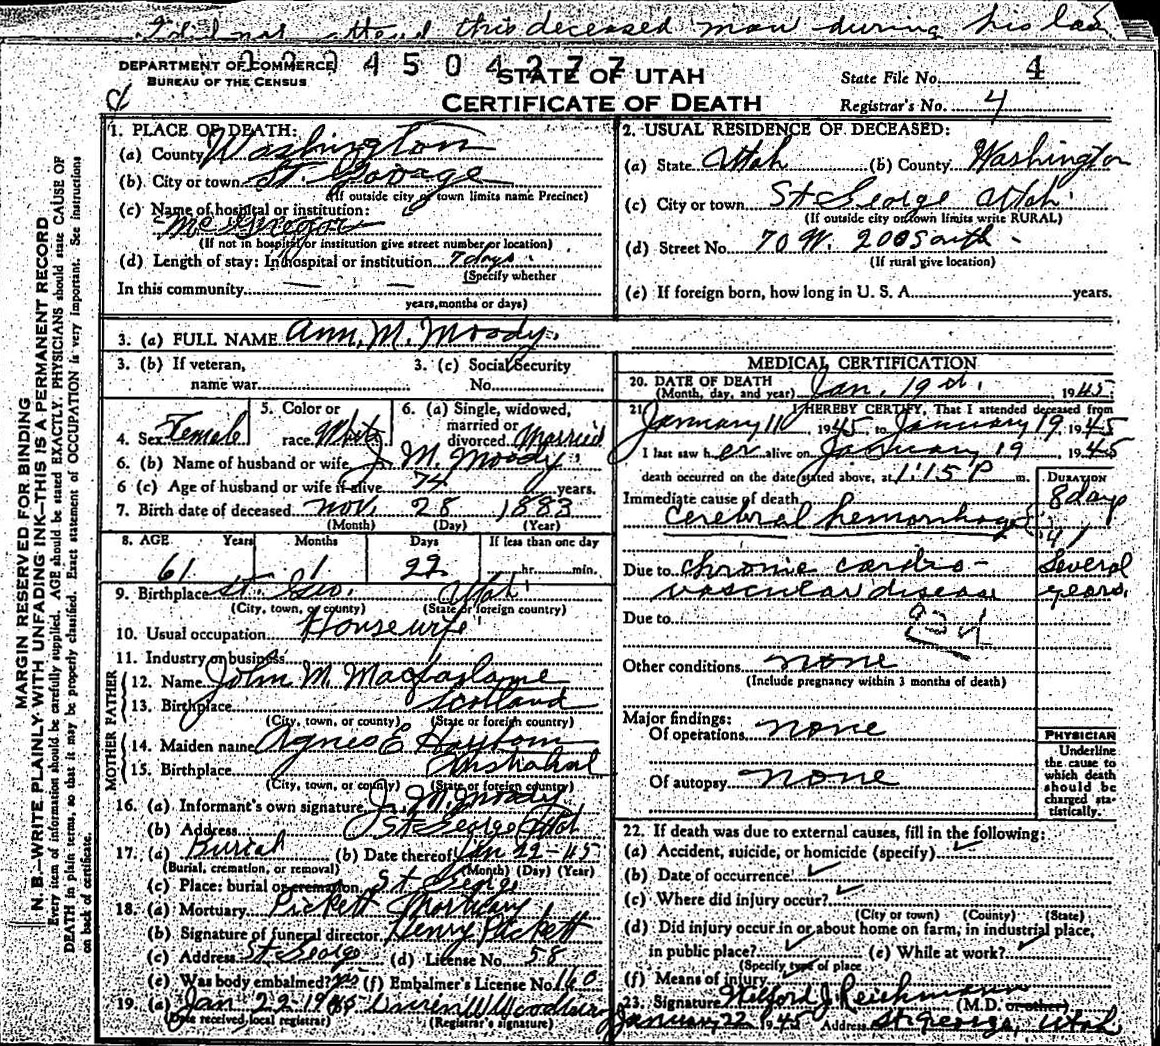 this deceased man during his las
DEPARTMENT OF COMMERCE
BUREAU OF THE CENSUS
4 5 0 4 2 7 7
STATE OF UTAH
CERTIFICATE OF DEATH
State File No. 4
Registrar's No. 4
MARGIN RESERVED FOR BINDING
N. B.—WRITE PLAINLY WITH UNFADING INK—THIS IS A PERMANENT RECORD
Every item of information should be carefully supplied. AGE should be stated EXACTLY. PHYSICIANS should state CAUSE OF
DEATH in plain terms, so that it may be properly classified. Exact statement of OCCUPATION is very important. See instructions
on back of certificate.
1. PLACE OF DEATH:
(a) County Washington
(b) City or town St. George
(If outside city or town limits name Precinct)
(c) Name of hospital or institution:
McGregor
(If not in hospital or institution give street number or location)
(d) Length of stay: In hospital or institution 7 days
(Specify whether
In this community — — —
years, months or days)
2. USUAL RESIDENCE OF DECEASED:
(a) State Utah (b) County Washington
(c) City or town St George Utah
(If outside city or town limits write RURAL)
(d) Street No. 70 W. 200 South
(If rural give location)
(e) If foreign born, how long in U. S. A. years.
3. (a) FULL NAME Ann M. Moody
3. (b) If veteran,
name war
3. (c) Social Security
No.
4. Sex Female
5. Color or
race White
6. (a) Single, widowed,
married or
divorced Married
6. (b) Name of husband or wife J. M. Moody
6 (c) Age of husband or wife if alive 74 years.
7. Birth date of deceased Nov. 28 1883
(Month) (Day) (Year)
8. AGE Years Months Days If less than one day
61 1 22 hr. min.
9. Birthplace St. Geo. Utah
(City, town, or county) (State or foreign country)
10. Usual occupation Housewife
11. Industry or business
FATHER
12. Name John M. Macfarlane
13. Birthplace Scotland
(City, town, or county) (State or foreign country)
MOTHER
14. Maiden name Agnes E
15. Birthplace
(City, town, or county) (State or foreign country)
16. (a) Informant's own signature J. M. Moody
(b) Address St George Utah
17. (a) Burial (b) Date thereof Jan 22-45
(Burial, cremation, or removal) (Month) (Day) (Year)
(c) Place: burial or cremation St George
18. (a) Mortuary Pickett Mortuary
(b) Signature of funeral director Henry Pickett
(c) Address St George (d) License No. 58
(e) Was body embalmed? yes (f) Embalmer's License No. 160
19. (a) Jan 22-1945
(Date received local registrar) (Registrar's signature)
MEDICAL CERTIFICATION
20. DATE OF DEATH
(Month, day, and year) Jan. 19 1945
21. I HEREBY CERTIFY, That I attended deceased from
January 11 1945, to January 19 1945
I last saw her alive on January 19 1945
death occurred on the date stated above, at 1:15 P m.
DURATION
Immediate cause of death 8 days
cerebral hemorrhage
Due to chronic cardio- Several
vascular disease years
Due to
Other conditions none
(Include pregnancy within 3 months of death)
Major findings:
Of operations none
Of autopsy none
PHYSICIAN
Underline
the cause to
which death
should be
charged sta-
tistically.
22. If death was due to external causes, fill in the following:
(a) Accident, suicide, or homicide (specify)
(b) Date of occurrence
(c) Where did injury occur?
(City or town) (County) (State)
(d) Did injury occur in or about home on farm, in industrial place,
in public place? (e) While at work?
(Specify type of place
(f) Means of injury
23. Signature Wilford J. Reichmann (M.D. or other)
January 22 1945 Address St. George, Utah